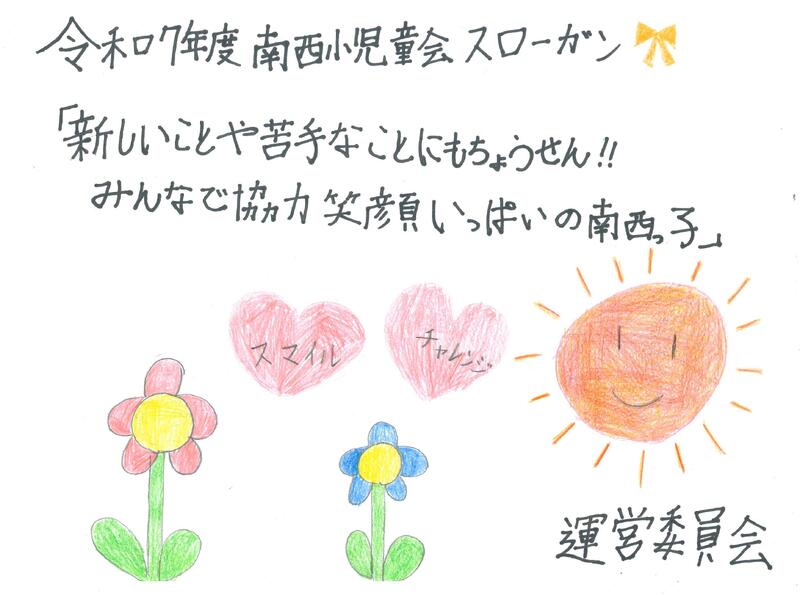 令和7年度 南西小児童会 スローガン
「新しいことや苦手なことにもちょうせん!!
みんなで協力 笑顔いっぱいの南西っ子」
スマイル
チャレンジ
運営委員会